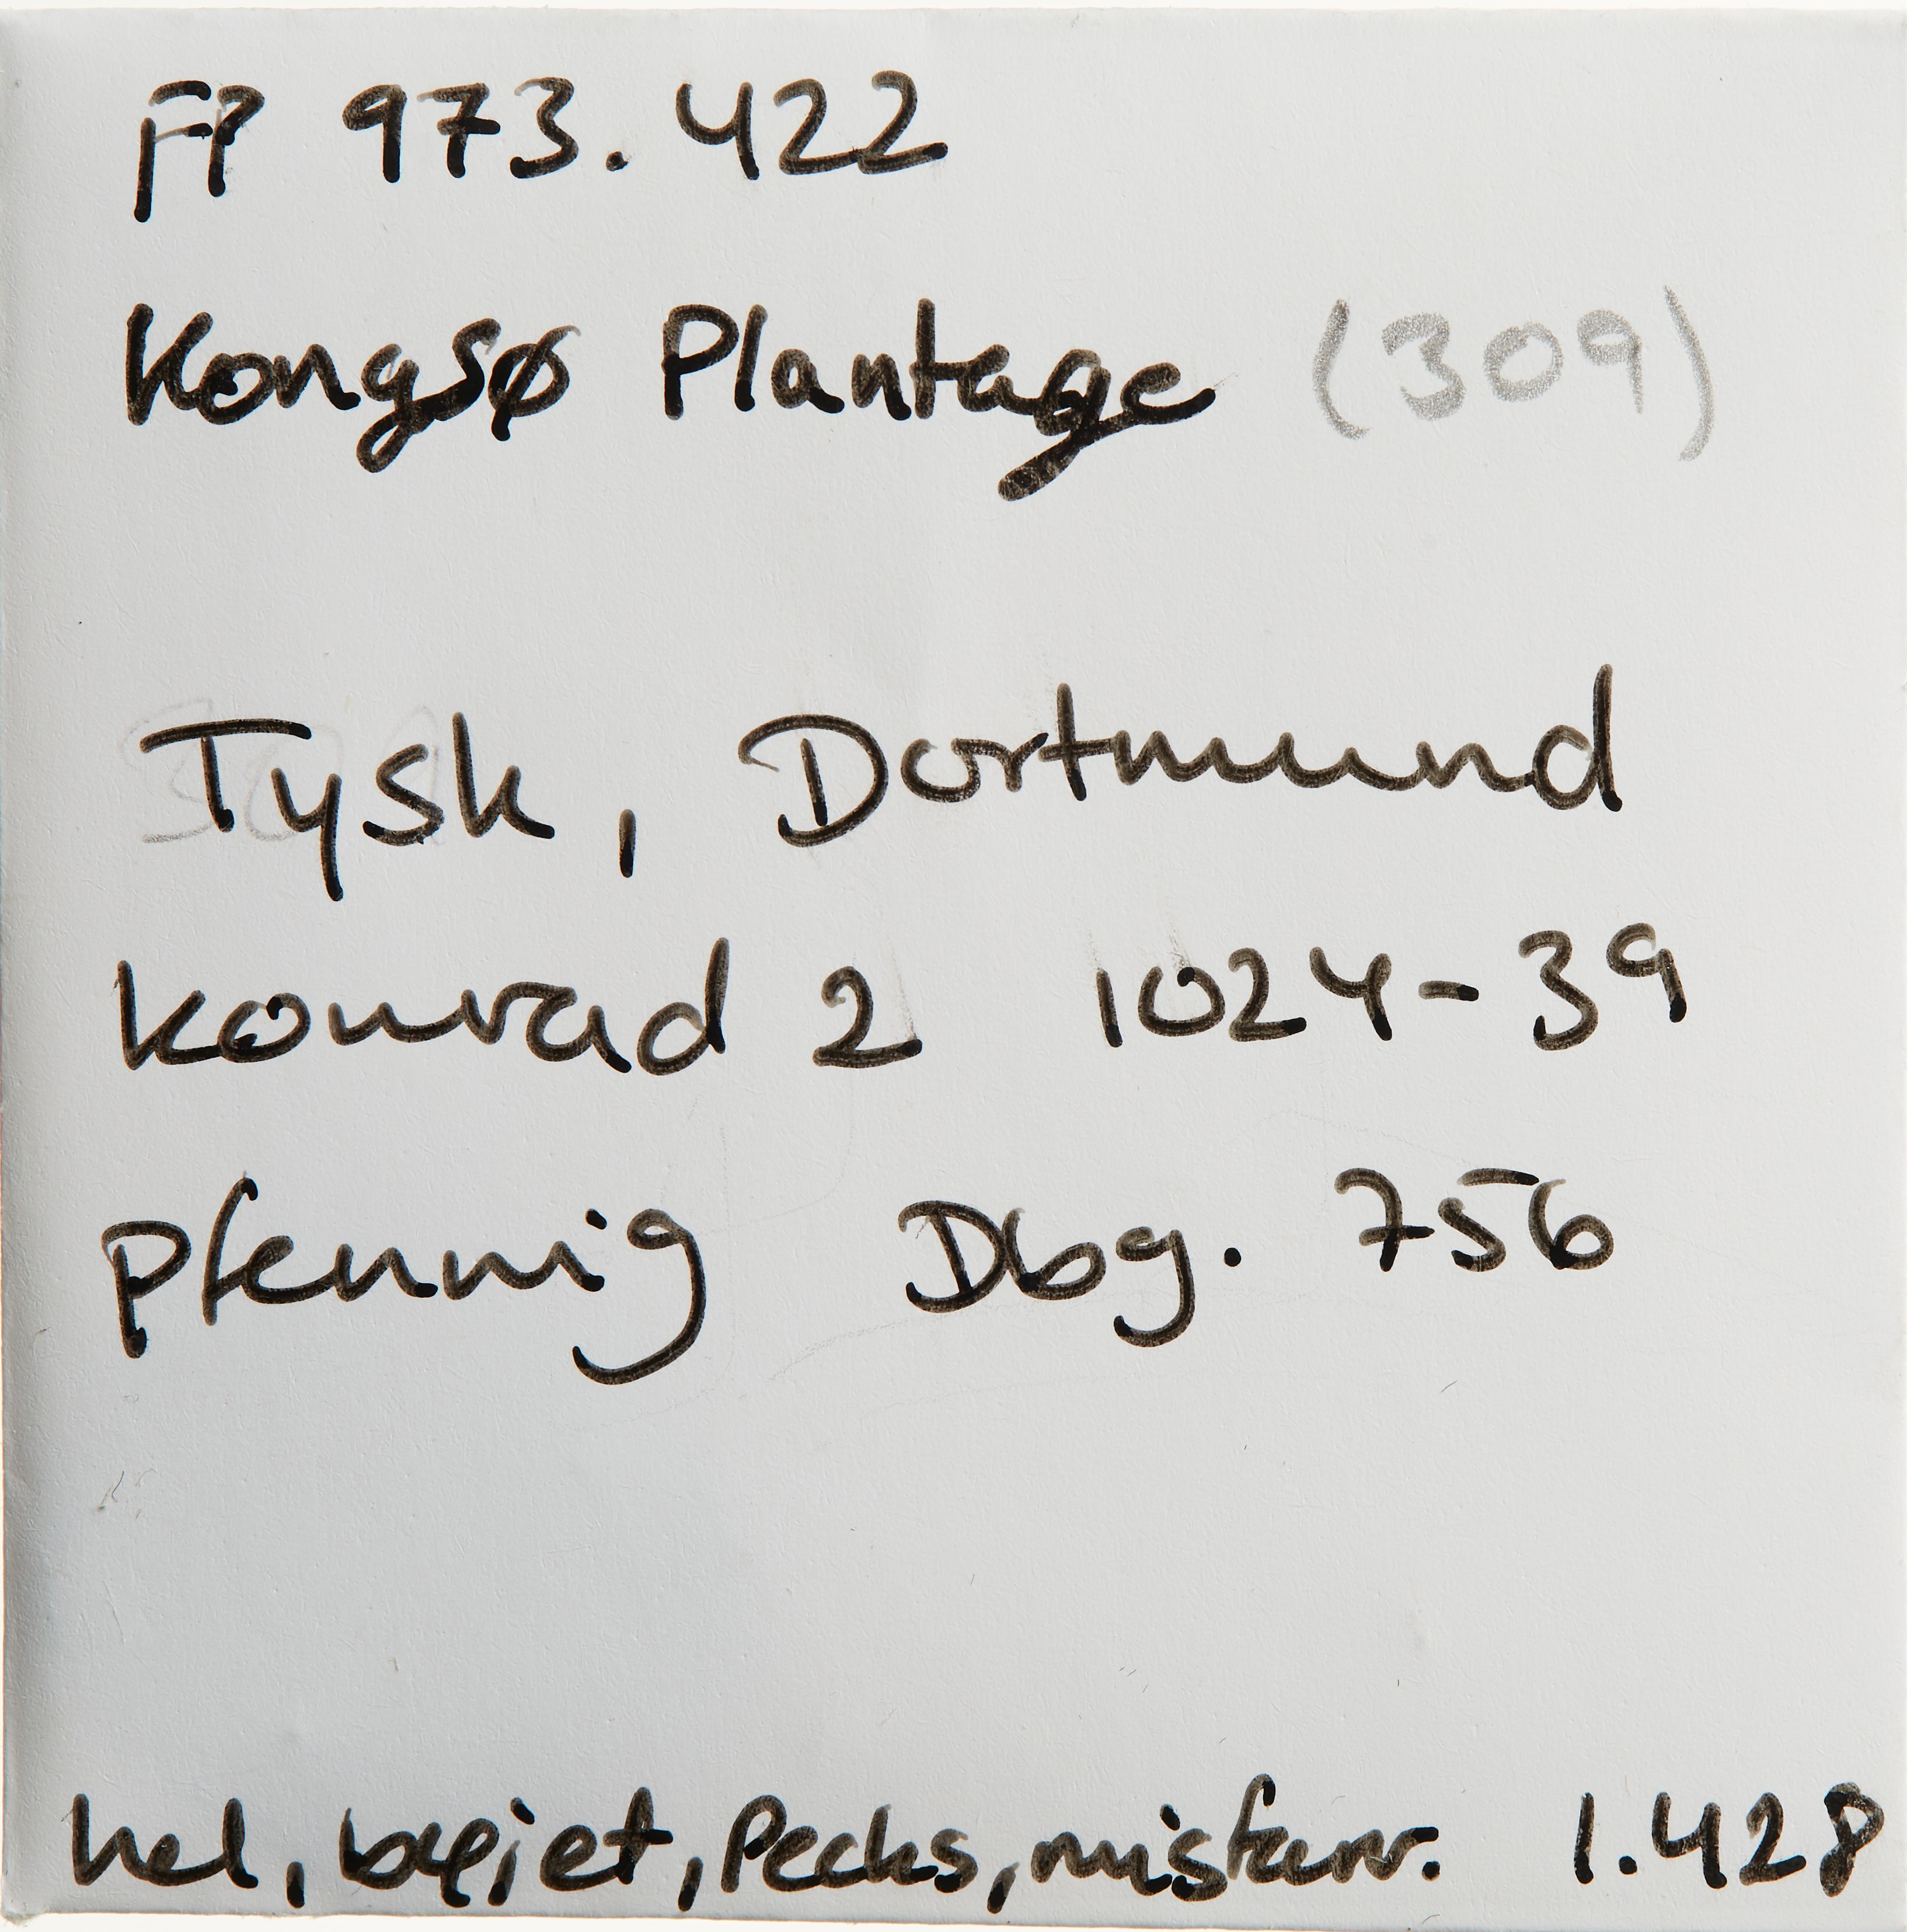 FP 973.422
Kongsø Plantage (309)
Tysk, Dortmund
Konrad 2 1024-39
Pfennig Dbg. 756
hel, bøjet, Pecks, misfarv. 1.428